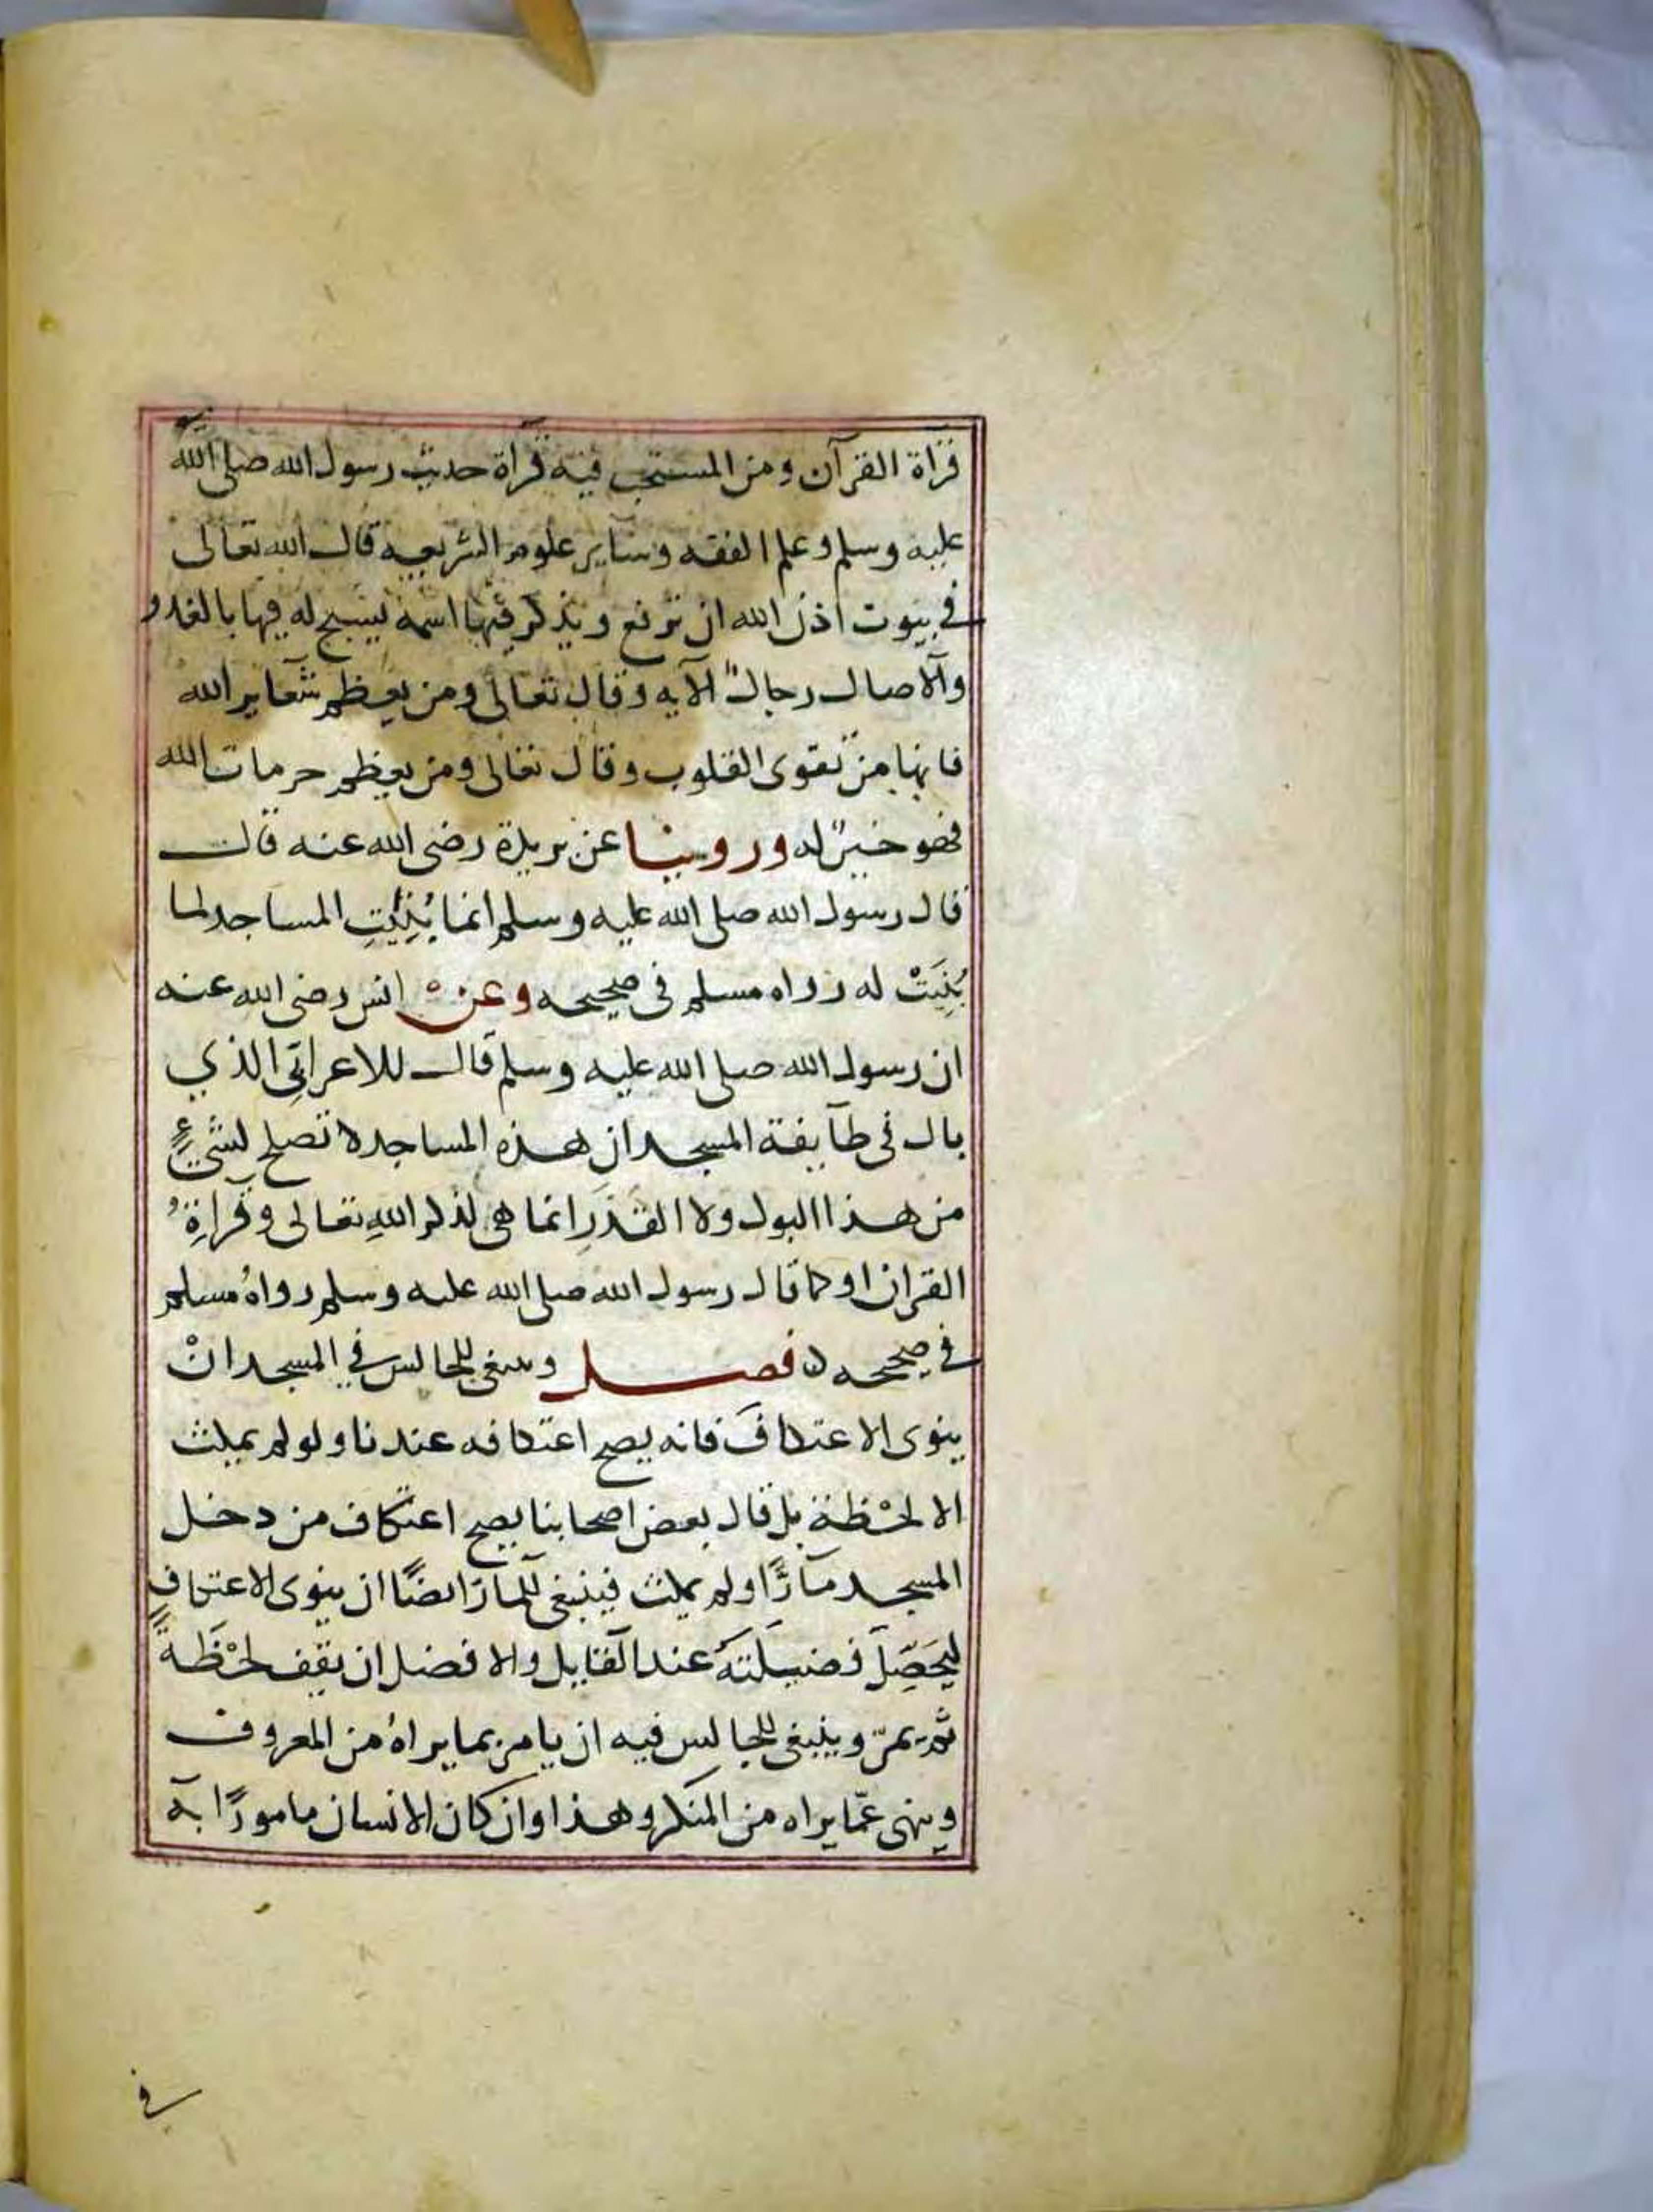 قرأة القرآن ومن المستحب فيه قرأة حديث رسول الله صلى الله
عليه وسلم وعلم الفقه وسآير علوم الشريعه قال الله تعالى
في بيوت اذن الله ان ترفع ويذكر فيها اسمه يسبح له فيها بالغدو
والآصال رجالٌ الآيه وقال تعالى ومن يعظم شعآير الله
فانها من تقوى القلوب وقال تعالى ومن يعظم حرمات الله
فهو خيرٌ له وروينا عن بريدة رضى الله عنه قال
قال رسول الله صلى الله عليه وسلم انما بُنِيَتِ المساجد لما
بُنِيَتْ له رواه مسلم فى صحيحه وعنْ انس رضى الله عنه
ان رسول الله صلى الله عليه وسلم قال للاعرابِى الذي
بال فى طآيفة المسجد ان هذه المساجد لا تصلح لشىءٍ
من هذا البول ولا القذَرِ انما هى لذكر اللهِ تعالى وقرآةِ
القران او كما قال رسول الله صلى الله عليه وسلم رواهُ مسلم
في صحيحه فصل وينبغى للجالس في المسجد انْ
ينوى الاعتكافَ فانه يصح اعتكافه عندنا ولو لم يمكث
الا لحْظة بل قال بعض اصحابنا يصح اعتكاف من دخل
المسجد مآرًّا ولم يمكث فينبغى للمآرّ ايضًا ان ينوى الاعتكاف
ليحَصِّلَ فضيلتهَ عند القآيل والافضل ان يقف لحْظةً
ثم يمرّ وينبغى للجالس فيه ان يامر بما يراهُ من المعروف
وينهى عمّا يراه من المنكر وهذا وان كان الانسان مامورًا به
في